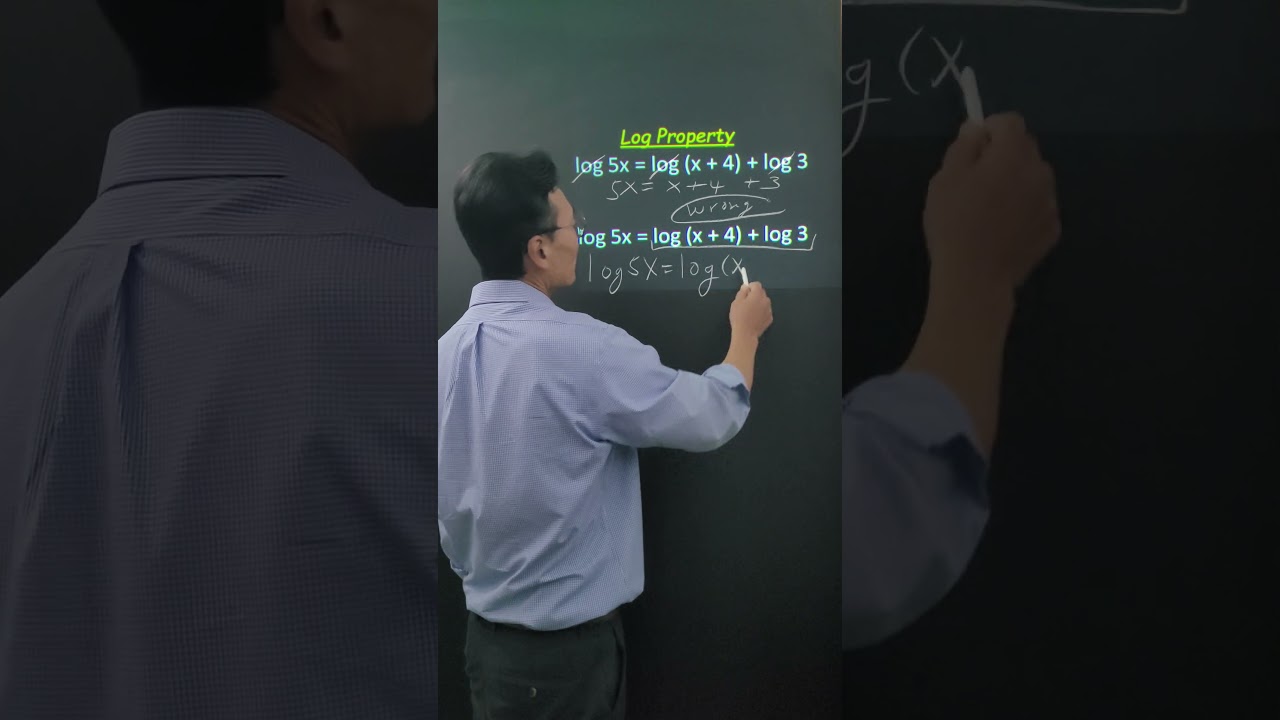 Log Property
log 5x = log (x + 4) + log 3
5x = x + 4 + 3
wrong
log 5x = log (x + 4) + log 3
log 5x = log (x
g (x